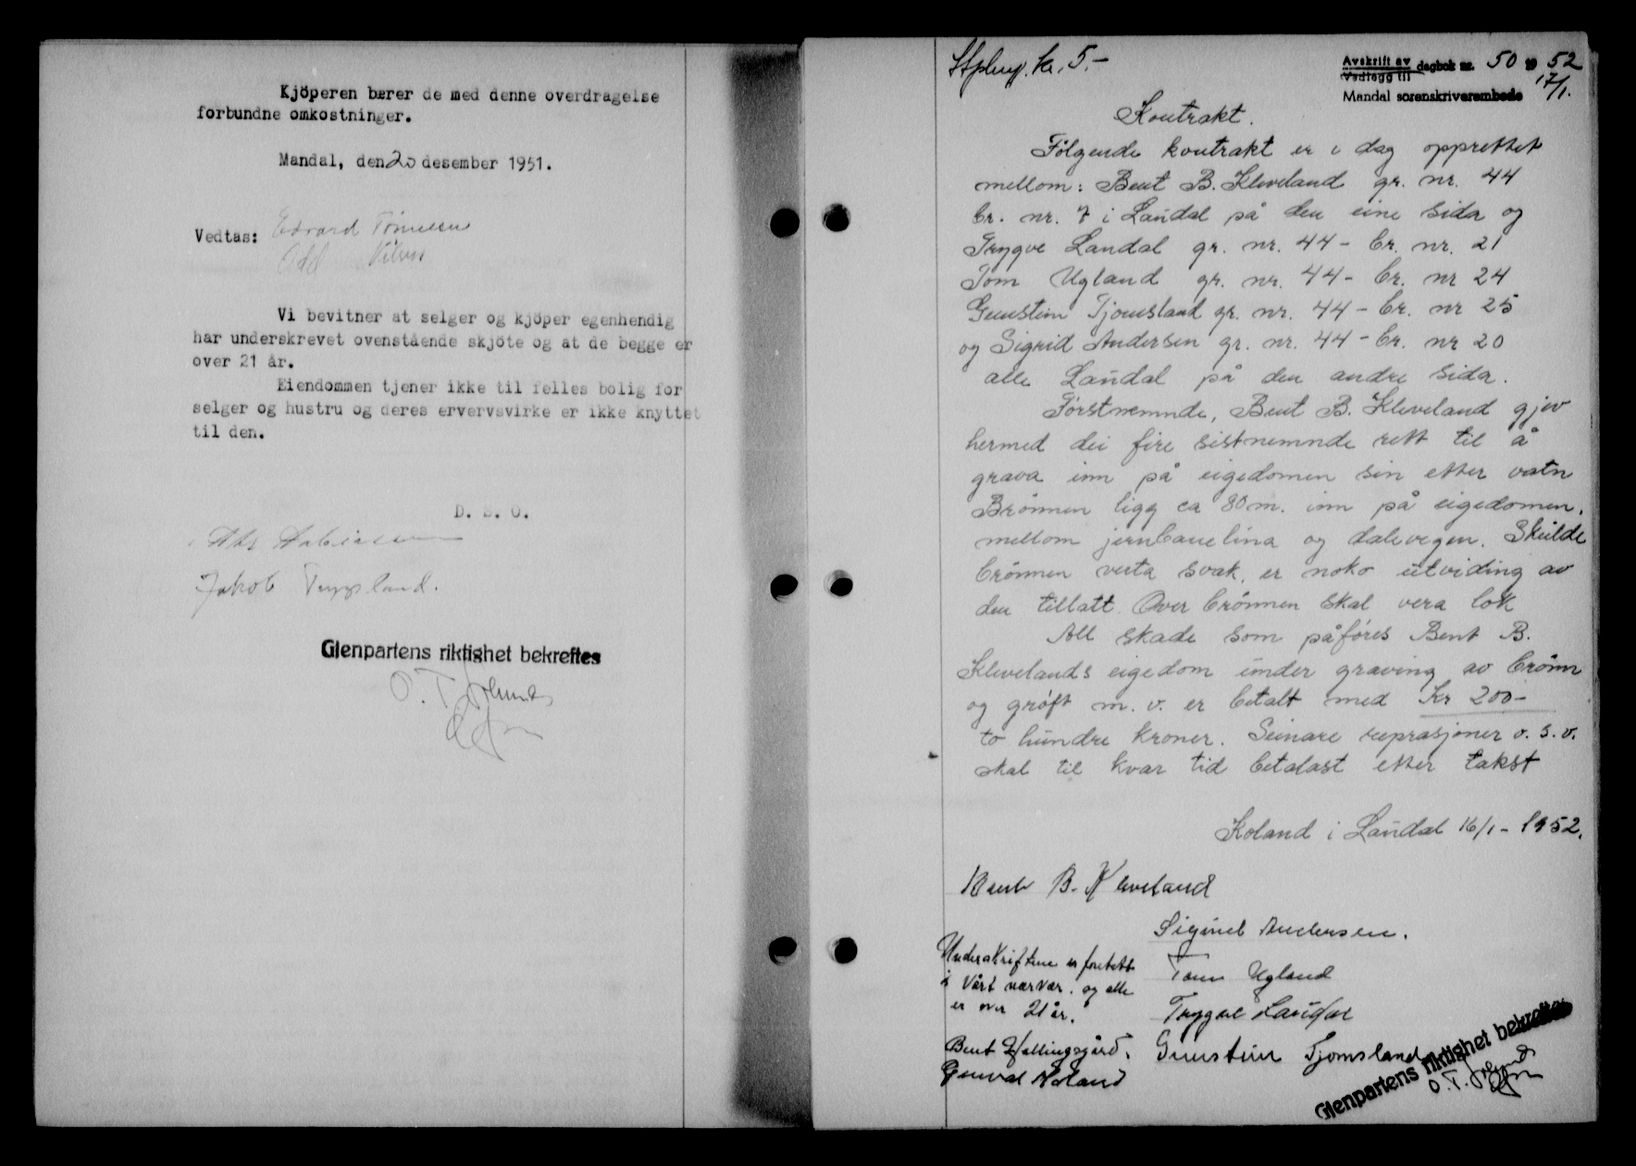 Kjöperen bærer de med denne overdragelse
forbundne omkostninger.
Mandal, den 20 desember 1951.
Vedtas: Edvard Tönnesen
Vi bevitner at selger og kjöper egenhendig
har underskrevet ovenstående skjöte og at de begge er
over 21 år.
Eiendommen tjener ikke til felles bolig for
selger og hustru og deres ervervsvirke er ikke knyttet
til den.
D. S. O.
Jakob Tryggsland.
Glenpartens riktighet bekreftes
O. T.
kr. 5.-
Avskrift av dagbok nr. 50 19 52
Vedlegg til 17/1.
Mandal sorenskriverembede
Kontrakt.
Følgende kontrakt er i dag opprettet
mellom: Bent B. Kleveland gr. nr. 44
br. nr. 7 i Laudal på den eine sida og
Trygve Laudal gr. nr. 44 - br. nr. 21
Tom Ugland gr. nr. 44 - br. nr 24
Gunstein Tjomsland gr. nr. 44 - br. nr 25
og Sigrid Andersen gr. nr. 44 - br. nr 20
alle Laudal på den andre sida.
Førstnemnde, Bent B. Kleveland gjev
hermed dei fire sistnemnde rett til å
grava inn på eigedomen sin etter vatn
Brönnen ligg ca 80 m. inn på eigedomen,
mellom jernbanelina og dalevegen. Skulde
brönnen verta svak, er noko utviding av
den tillatt. Over brönnen skal vera lok
All skade som påføres Bent B.
Klevelands eigedom under graving av brönn
og grøft m. v. er betalt med Kr 200-
to hundre kroner. Seinare reprasjoner o. s. v.
skal til kvar tid betalast etter takst
Koland i Laudal 16/1 - 1952.
Bent B. Kleveland
Sigrid Andersen.
Underskriftene er foretatt
i vårt nærvær og alle
er over 21 år.
Tom Ugland
Trygve Laudal
Bent Hallingsgård.
Gunstein Tjomsland
Gunval Koland
Glenpartens riktighet bekreftes
O. T.